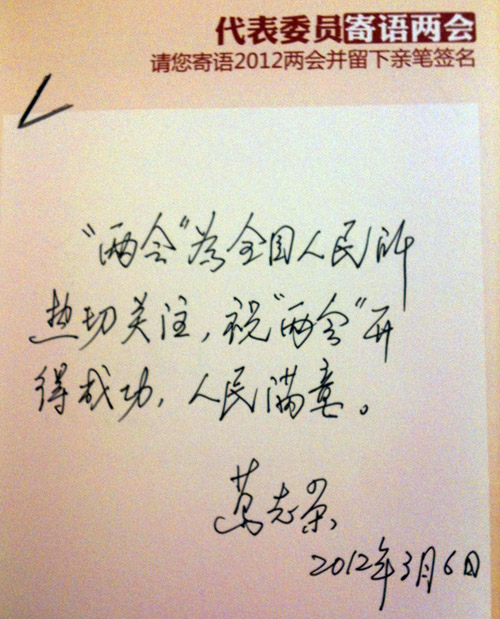 代表委员寄语两会
请您寄语2012两会并留下亲笔签名
“两会”为全国人民所
热切关注，祝“两会”开
得成功，人民满意。
葛志荣
2012年3月6日